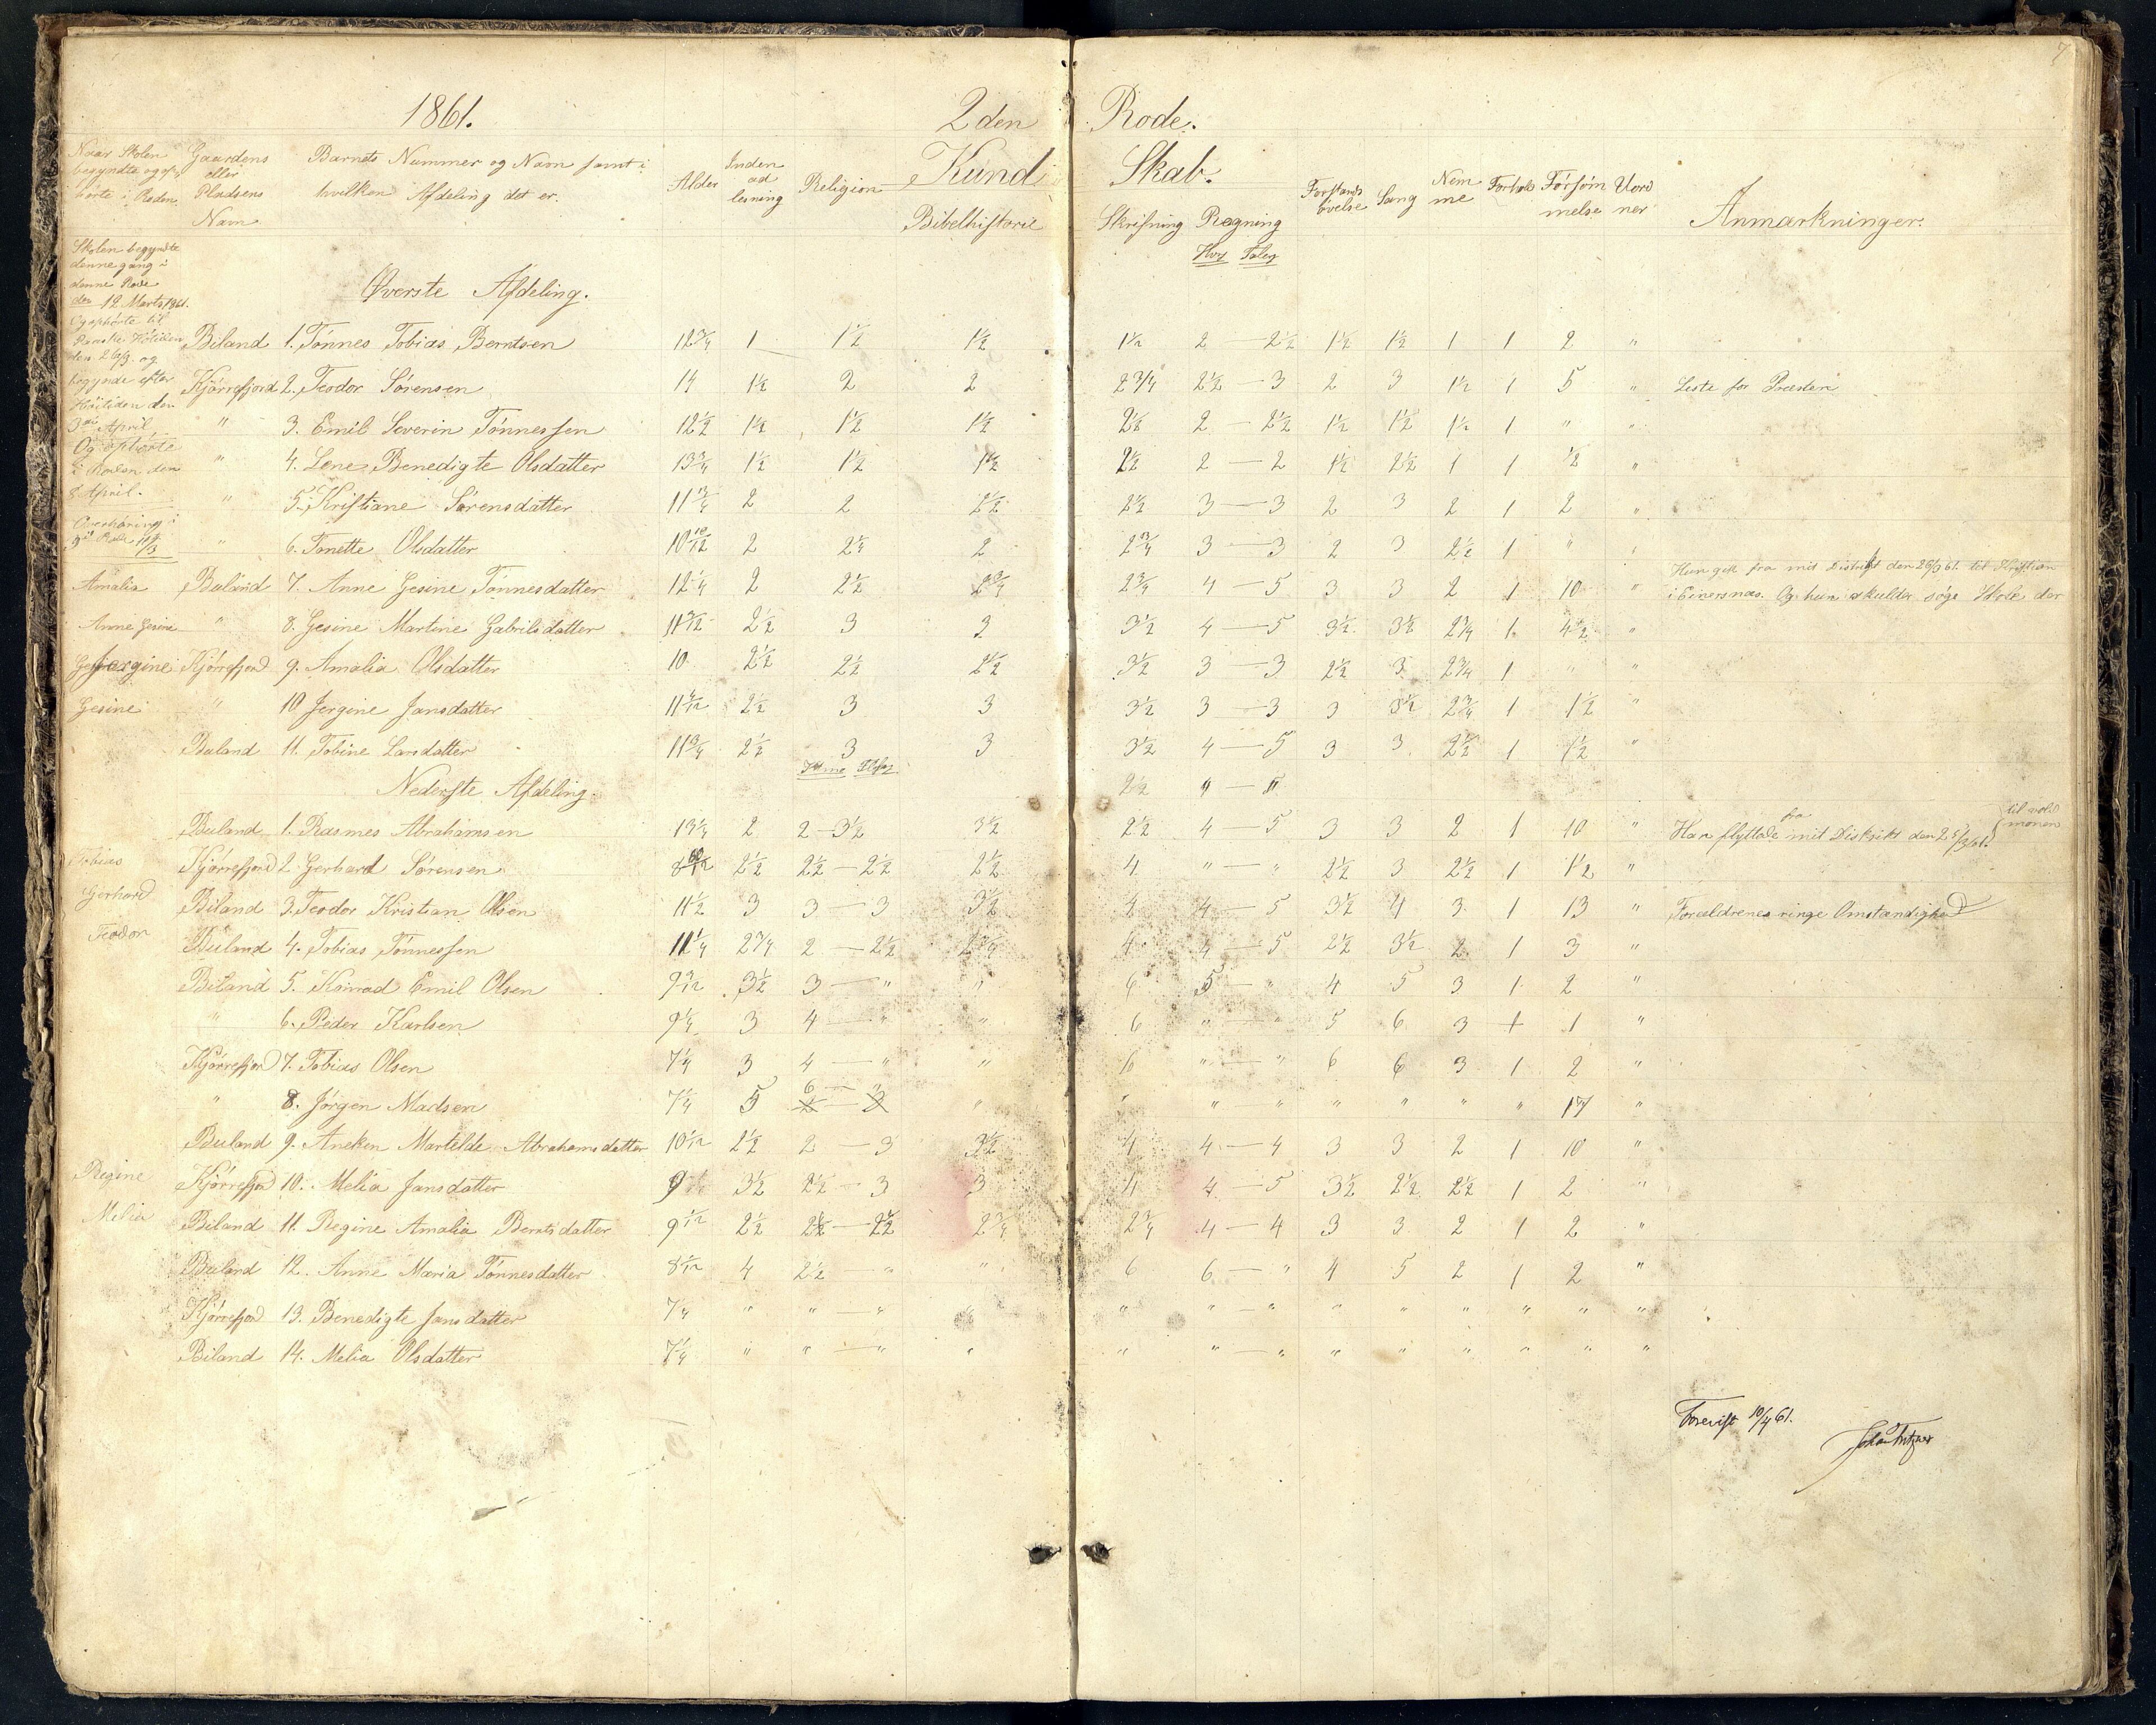 7
1861. 2den Rode.
Naar Skolen begyndte og op- hörte i Roden
Gaardens eller Pladsens Navn
Barnets Nummer og Navn samt i hvilken Afdeling det er.
Alder
Inden ad lesning
Religion
Kund Skab.
Bibelhistorie
Skrifning Regning
Hov Tavle
Forstands övelse
Sang
Nem me
Forhold
Forsöm melse
Uord ner
Anmærkninger.
Skolen begyndte
denne gang i
denne Rode
den 12 Marts 1861.
Og ophörte til
den 26/3. og
begynde efter
Höitiden den
3die April
Og ophörte
i Roden den
8 April.
Overhöring i
Øverste Afdeling.
Biland 1. Tönnes Tobias Berntsen 12 3/4 1 1 1/2 1 1/2 1 1/2 2 — 2 1/2 1 1/2 1 1/2 1 1 2 "
Kjörrefjord 2. Teodor Sörensen 14 1 1/2 2 2 2 3/4 2 1/2 — 3 2 3 1 1/2 1 5 " Leste for Præsten
" 3. Emil Severin Tönnessen 12 1/2 1 1/2 1 1/2 1 1/2 2 1/2 2 — 2 1/2 1 1/2 1 1/2 1 1/2 1 " "
" 4. Lene Benedigte Olsdatter 13 3/4 1 1/2 1 1/2 1 1/2 2 1/2 2 — 2 1 1/2 2 1/2 1 1 1/2 "
" 5. Kristiane Sörensdatter 11 3/4 2 2 2 1/2 2 1/2 3 — 3 2 3 2 1 2 "
" 6. Tonette Olsdatter 10 10/12 2 2 1/4 2 2 3/4 3 — 3 2 3 2 1/2 1 " "
Amalia Buland 7. Anne Gesine Tönnesdatter 12 1/4 2 2 1/2 2 3/4 2 3/4 4 — 5 3 3 2 1 10 " Hun gik fra mit Distrikt den 26/3 61. til
i Einersnæs. Og hun skulde söge Skole der
Anne Gesine " 8. Gesine Martine Gabrilsdatter 2 1/2 3 3 3 1/2 4 — 5 3 1/2 3 1/2 2 3/4 1 4 1/2 "
Jergine Kjörrefjord 9. Amalia Olsdatter 10 2 1/2 2 1/2 2 1/2 3 1/2 3 — 3 2 1/2 3 2 3/4 1 " "
Gesine " 10 Jergine Jansdatter 2 1/2 3 3 3 1/2 3 — 3 3 3 1/2 2 3/4 1 1 1/2 "
Buland 11. Tobine Larsdatter 11 3/4 2 1/2 3 3 3 1/2 4 — 5 3 3 2 1/2 1 1 1/2 "
Nederste Afdeling.
Buland 1. Rasmes Abrahamsen 13 1/4 2 2 — 3 1/2 3 1/2 2 1/2 4 — 5 3 3 2 1 10 " Han flyttede fra mit Diskrikt den 25/3 61.
Tobias Kjörrefjord 2 Gerhard Sörensen 2 1/2 2 1/2 — 2 1/2 2 1/2 4 " — " 2 1/2 3 2 1/2 1 1 1/2 "
Gerhard Biland 3. Teodor Kristian Olsen 11 1/2 3 3 — 3 3 1/2 4 4 — 5 3 1/2 4 3 1 13 " Forældrenes ringe Omstændighed
Teodor Buland 4. Tobias Tönnessen 11 1/4 2 3/4 2 — 2 1/2 2 3/4 4 4 — 5 2 1/2 3 1/2 2 1 3 "
Biland 5. Konrad Emil Olsen 3 1/2 3 — " " 6 5 — " 4 5 3 1 2 "
" 6. Peder Karlsen 9 1/4 3 4 — " " 6 " — " 5 6 3 1 1 "
Kjörrefjord 7. Tobias Olsen 7 1/4 3 4 — " " 6 " — " 6 6 3 1 2 "
" 8. Jörgen Madsen 7 1/4 5 6 — " " " " " " " " " 17 "
Buland 9. Aneken Martilde Abrahamsdatter 10 1/12 2 1/2 2 — 3 3 1/2 4 4 — 4 3 3 2 1 10 "
Regine Kjörrefjord 10. Melia Jansdatter 9 3 1/2 2 1/2 — 3 3 4 4 — 5 3 1/2 2 1/2 2 1/2 1 2 "
Melia Biland 11. Regine Amalia Berntsdatter 9 1/12 2 1/2 2 1/2 — 2 1/2 2 3/4 2 3/4 4 — 4 3 3 2 1 2 "
Buland 12. Anne Maria Tönnesdatter 4 2 1/2 — " " 6 6 — " 4 5 2 1 2 "
Kjörrefjord 13. Benedigte Jansdatter 7 1/4 " " — " " " " — " " " " " " "
Biland 14. Melia Olsdatter 7 1/4 " " — " " " " — " " " " " " "
Forevist 10/4 61.